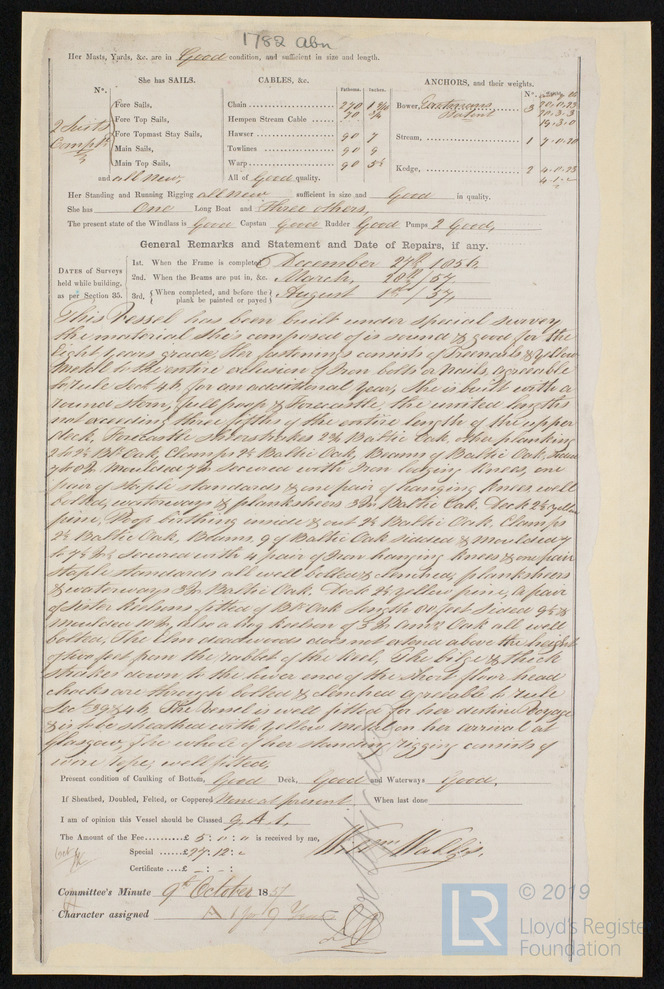 1782 Abn
Her Masts, Yards, &c. are in Good condition, and sufficient in size and length.
She has SAILS.
CABLES, &c.
ANCHORS, and their weights.
N°.
Fathoms. Inches.
N°.
2 Suits Compl
Fore Sails,
Fore Top Sails,
Fore Topmast Stay Sails,
Main Sails,
Main Top Sails,
and all New
Chain 270
Hempen Stream Cable 90
Hawser 90 7
Towlines 90 9
Warp 90
All of Good quality.
Bower, 3 20.0.23
20.3.3
19.3.0
Stream, 1 7.0.20
Kedge, 2 4.0.23
4.1.2
Her Standing and Running Rigging all New sufficient in size and Good in quality.
She has One Long Boat and Three others,
The present state of the Windlass is Good Capstan Good Rudder Good Pumps 2 Good,
General Remarks and Statement and Date of Repairs, if any.
DATES of Surveys held while building, as per Section 35.
1st. When the Frame is completed December 27th 1856
2nd. When the Beams are put in, &c. March, 20th/57
3rd. When completed, and before the plank be painted or payed August 1st/57,
This Vessel has been built under special survey
the material she's composed of is sound & good for the
Eight Years grade, Her fastenings consists of Treenails & Yellow
Metal to the entire exclusion of Iron bolts or Nails, agreeable
to rule Sect 46, for an additional Year, She is built with a
round stern, full poop & Forecastle, the united lengths
not exceeding three fifths of the entire length of the upper
deck, Forecastle Sheerstrakes 2¾ Baltic Oak, other planking
2¼ Bk Oak, Clamps 2½ Baltic Oak, Beams of Baltic Oak, sided
moulded 7 In secured with Iron lodging knees, one
pair of staple standards & one pair of hanging knees well
bolted, waterways & plankshears 3 In Baltic Oak, Deck 2½ yellow
pine, Poop birthing inside & out 2½ Baltic Oak, Clamps
2½ Baltic Oak, Beams, 9 of Baltic Oak sided & moulded 7
to 7½ In, secured with 4 pair of Iron hanging knees & one pair
staple standards all well bolted & clenched, plankshears
& waterways 3 In Baltic Oak, Deck 2½ yellow pine, a pair
of Sister Keelsons fitted of Bk Oak length 60 feet sided 9½ &
moulded 10 In, also a Keelson of Amn Oak all well
bolted, The Elm deadwoods does not extend above the height
of two feet from the rabbet of the keel, The bilge & thick
strakes down to the lower end of the short floor head
chocks are through bolted & clenched agreeable to rule
Sec 39 & 46, The Vessel is well fitted for her destined Voyage
& is to be sheathed with yellow metal on her arrival at
Glasgow, The whole of her standing rigging consists of
wire rope, well fitted,
Present condition of Caulking of Bottom, Good Deck, Good and Waterways Good,
If Sheathed, Doubled, Felted, or Coppered None at present When last done
I am of opinion this Vessel should be Classed 9. A. 1.
The Amount of the Fee £ 5 : 0 : 0 is received by me,
Special £27. 12 :
Certificate £ - : - :
Willm Wallis,
Committee's Minute 9th October 1857
Character assigned A 1 for 9 Years
© 2019
LR
Lloyd's Register
Foundation